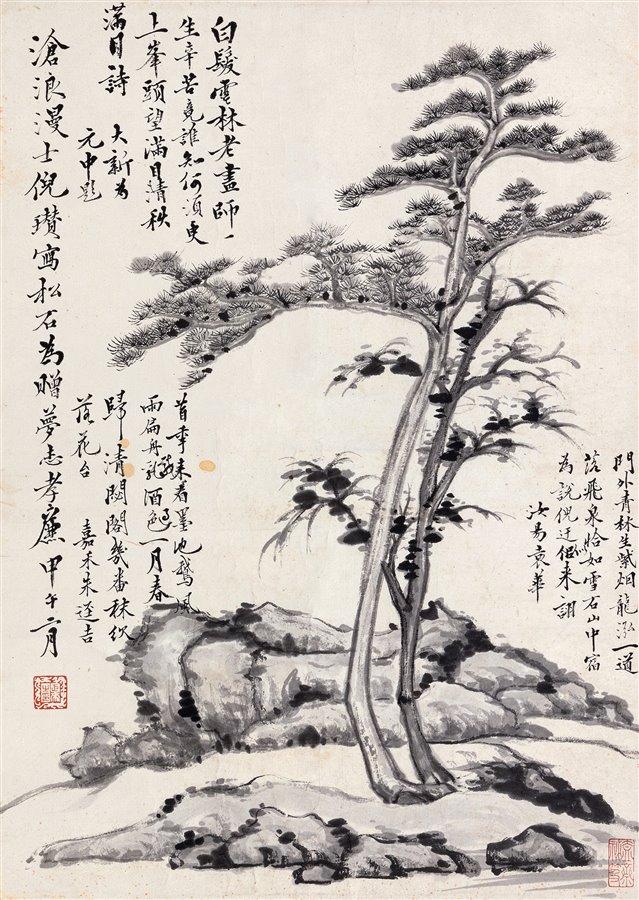 門外青林生紫烟龍泓一道
落飛泉恰如雪石山中宿
為說倪迂侣来詡
汝易袁華
白髮雲林老畫師一
生辛苦竟誰知何須更
上峯頭望滿目清秋
滿目詩
大新為
元申題
首季来看墨池鵞風
雨扁舟 酒 一月春
歸清閟閣幾番秣欲
落花台
嘉禾朱逕吉
滄浪漫士倪瓚寫松石為贈夢志孝廉甲午二月